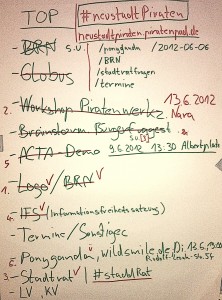 TOP #neustadtPiraten
neustadtpiraten.piratenpad.de
- BRN s.u. /ponygauda /2012-06-06
- Globus /BRN
/stadtratfragen
/termine
2. Workshop Piratenwerkz 13.6.2012
Nara
- Brainstormen Bürger
5 ACTA-Demo 9.6.2012 13:30 Albertplatz
1. Logo / BRN
4. IFS (Informationsfreiheitssatzung)
- Termine / Sonstiges
6. Ponygauda, wildsmile.de, Di, 12.6, 19:00
Rudolf-Leonh.-Str. 54
3. - Stadtrat | #staddRat
- LV, KV